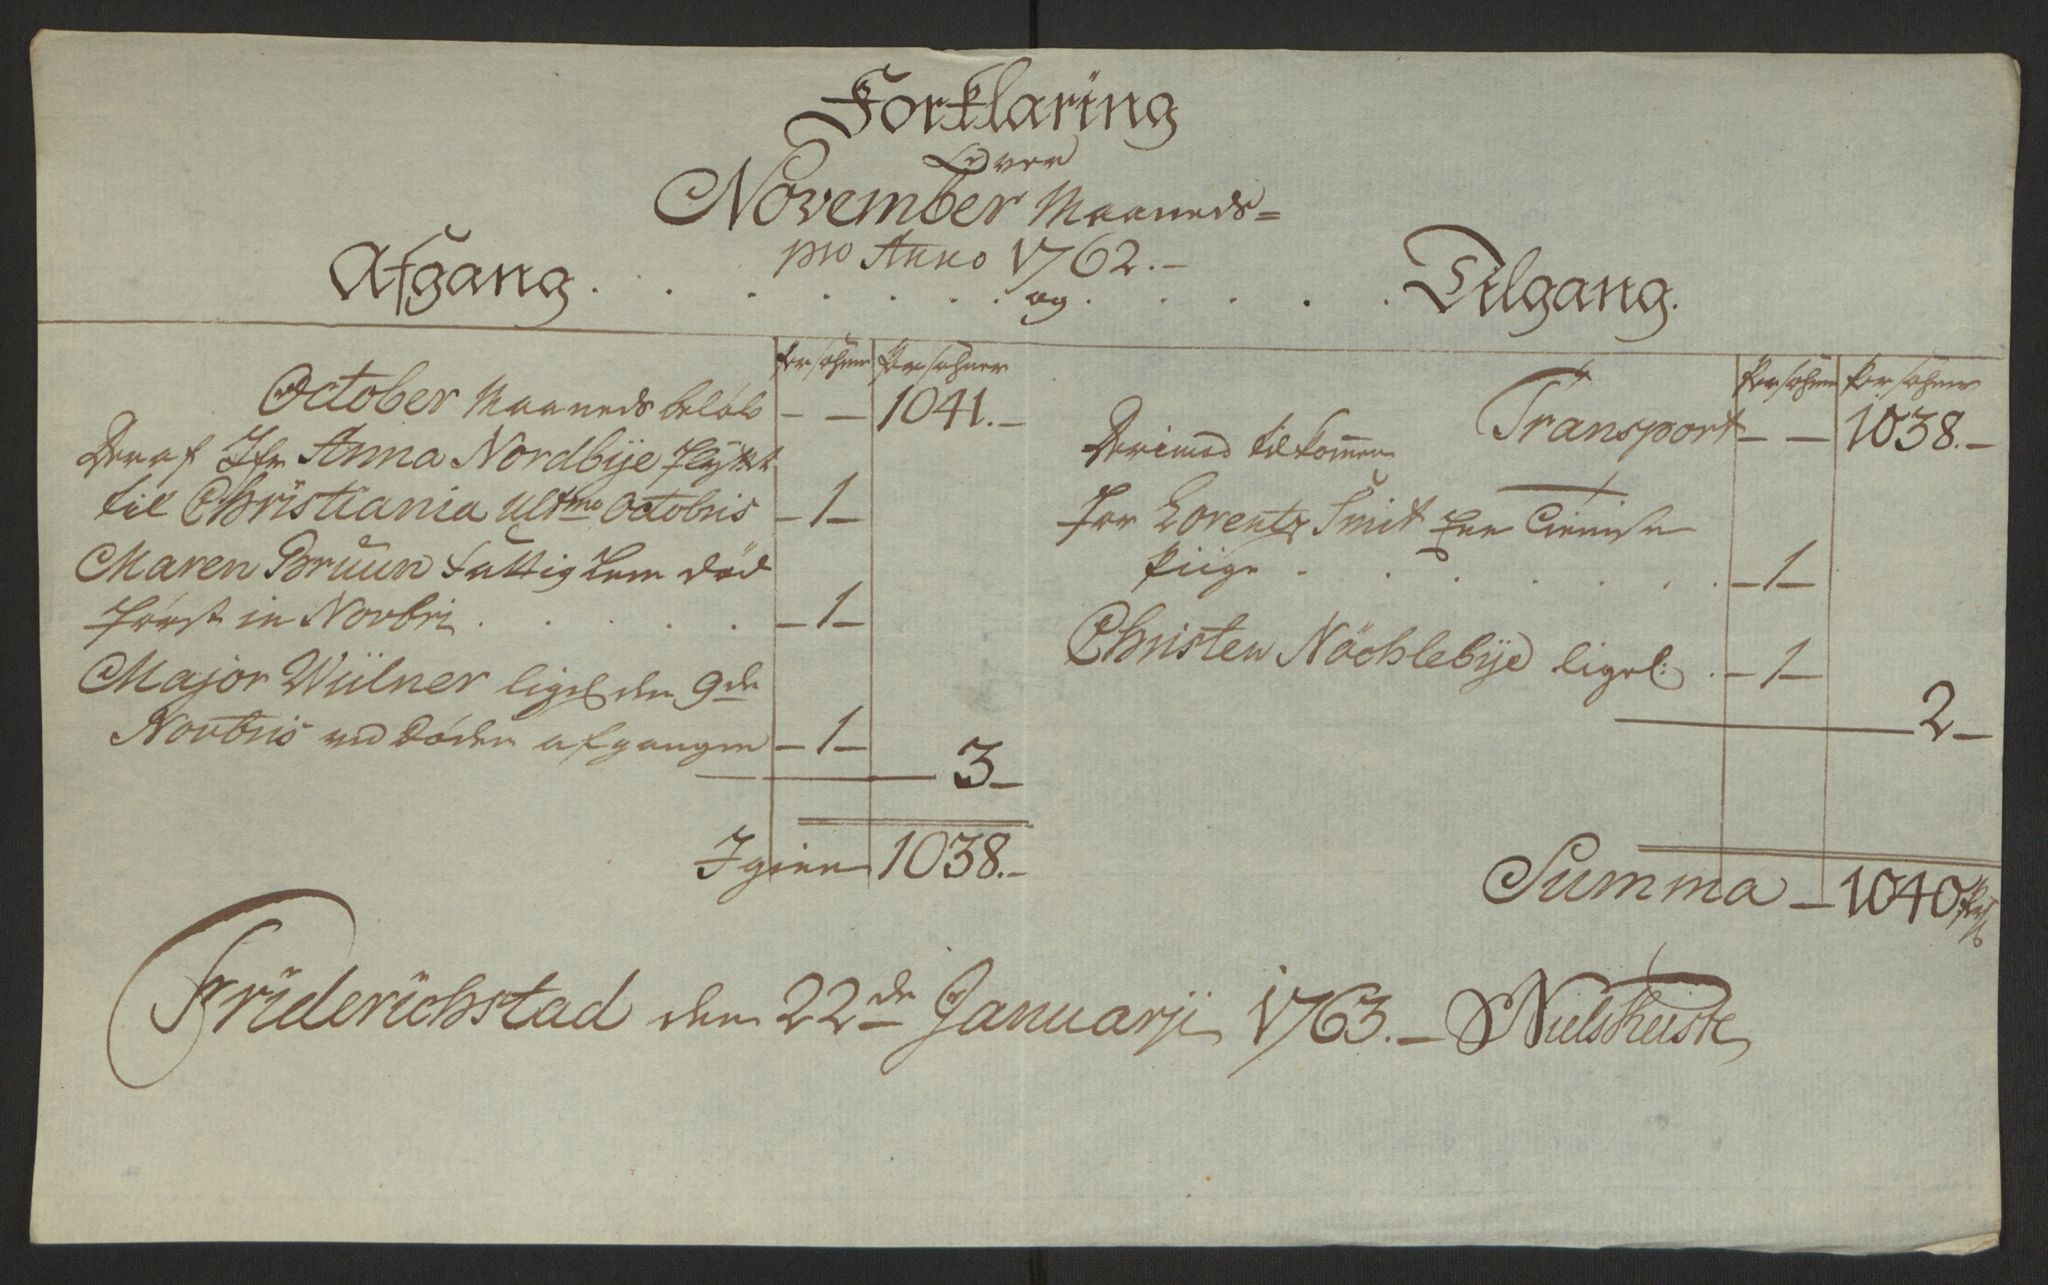 Forklaring
Over
November Maaneds=
pro Anno 1762.-
Afgang. . . . . . . og . . . . . Tilgang.
Persohner Persohner
October Maaneds beløb - - 1041.-
Deraf Jfr Anna Nordbÿe flÿttet
til Christiania ultmo Octobris -1-
Maren Bruun fattig Lem død
først in Novbri . . . . . -1-
Major Wülner ligel den 9de
Novbris ved døden afgangen -1-
3-
Igien 1038.-
Persohner Persohner
Transport - - 1038.-
Derimod tilkommen
hos Lorentz Smit Een Tieniste
Piige . . . . . . . -1-
Christen Nöchlebÿe ligel: . -1-
2-
Summa - 1040 Pers
Friderichstad den 22de Januarji 1763.-